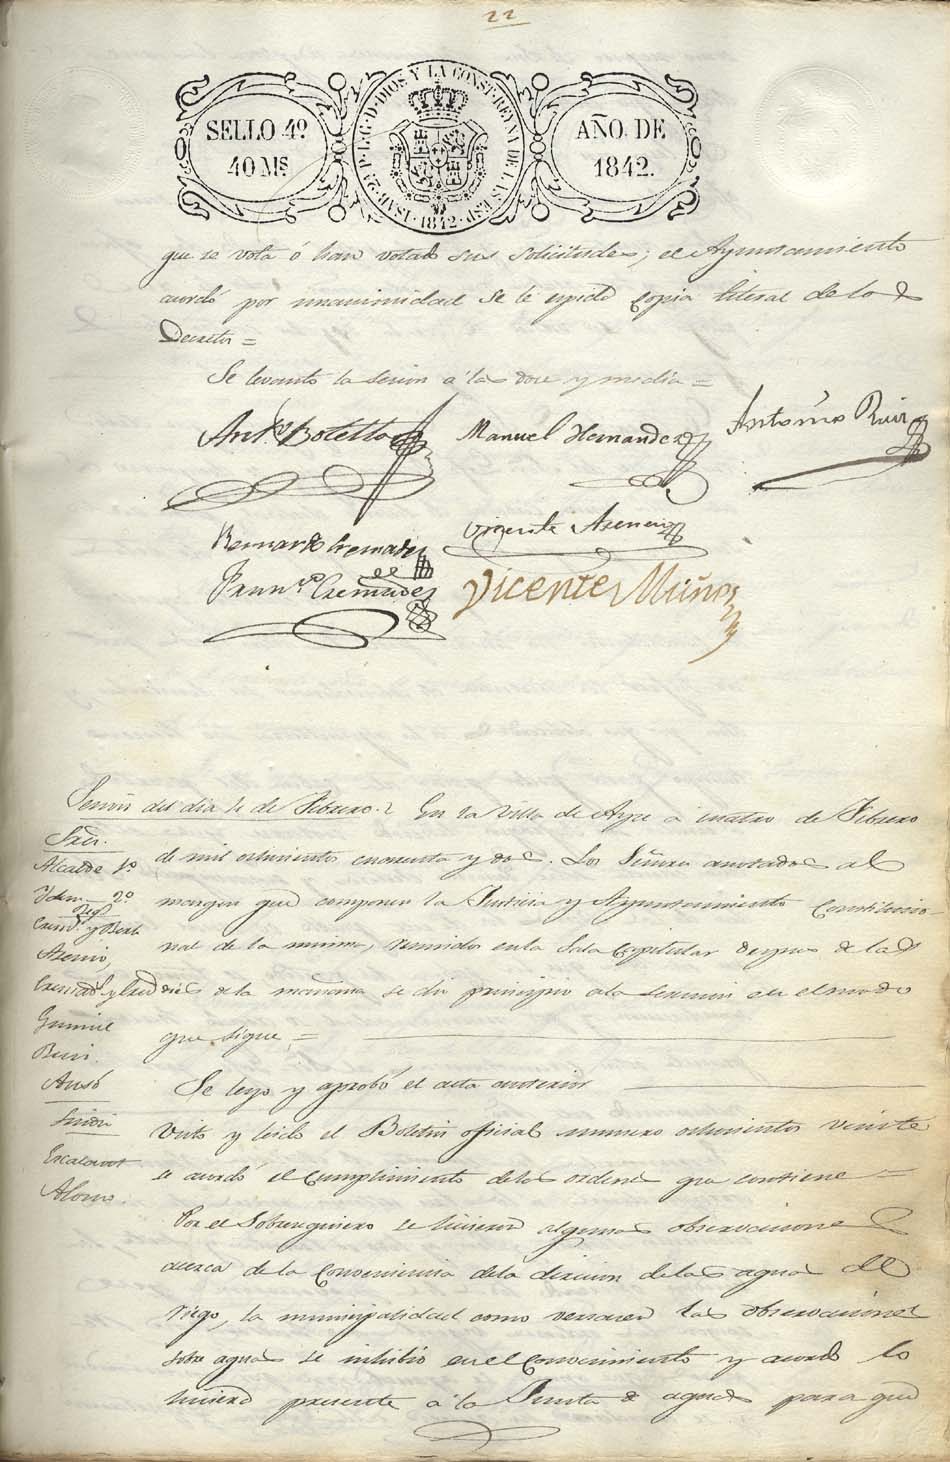 22
SELLO 4º
40 Ms.
ISAB. 2ª P. L. G. D. DIOS Y LA CONST. REYNA DE LAS ESP. 1842
AÑO DE
1842.
que se vota ó han votado sus solicitudes; el Ayuntamiento
acordó por unanimidad se le espida Copia literal de los
Decretos =
Se levanto la sesion á las doce y media =
Antº Botella
Manuel Hernandez
Antonio Ruiz
Bernardo Cremades
Vicente Asencio
Franco Cremades
Vicente Muños
Sesion del dia 4 de Febrero. En la Villa de Aspe a cuatro de Febrero
de mil ochocientos cuarenta y dos. Los Señores anotados al
margen que componen la Justicia y Ayuntamiento Constitucio-
nal de la misma, reunidos en la Sala Capitular despues de las
diez de la mañana se dio principio a la sesion en el modo
que sigue =
Sres.
Alcalde 1º
Idem 2º
Regs
Crem. y Botª
Asencio,
Cremads y
Gumiel
Ruiz.
Ausó
Sindi
Escalant
Alonso.
Se leyo y aprobó el acta anterior
Visto y leido el Boletin oficial numero ochocientos veinte
se acordó el cumplimiento de las ordenes que contiene =
Por el Sobrequiero se hicieron algunas observaciones
acerca de la Conveniencia de la direccion de las aguas del
riego, la municipalidad como versaren las observaciones
sobre aguas se inhibió en el Conocimiento y acordó lo
hiciera presente á la Junta de aguas para que